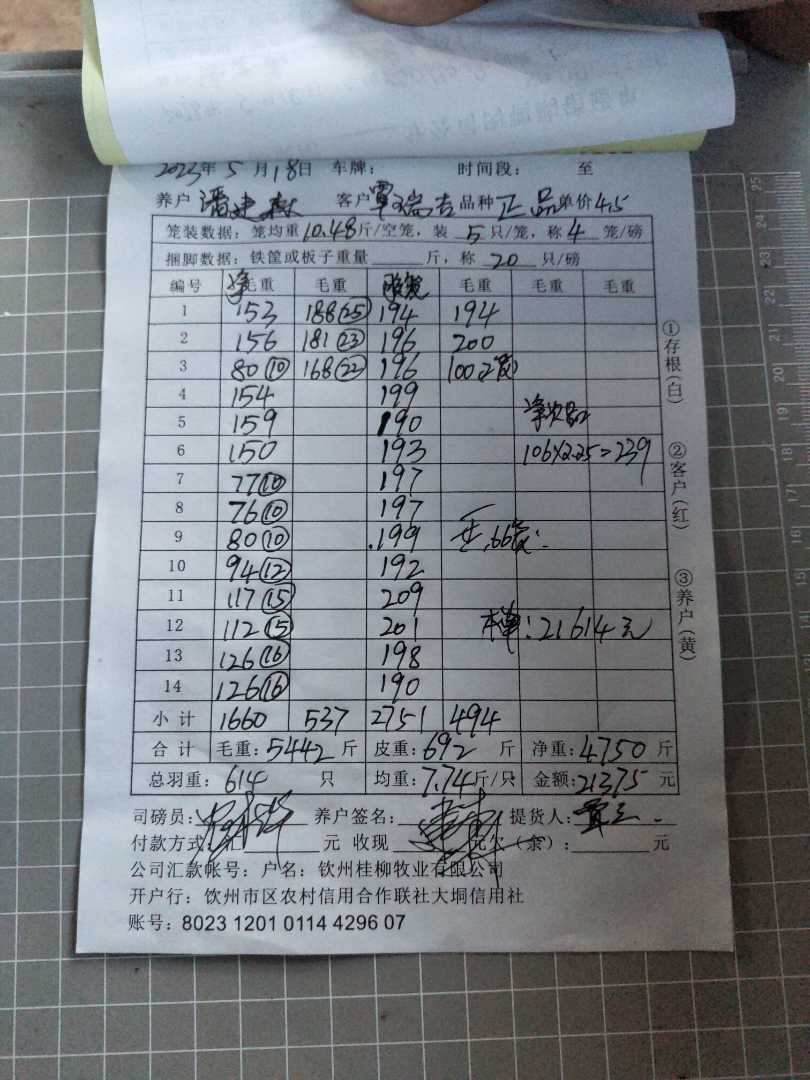 2023年5月18日 车牌： 时间段： 至
养户 潘建 客户 覃瑞吉 品种 正品 单价4.5
笼装数据：笼均重10.48斤/空笼，装 5 只/笼，称 4 笼/磅
捆脚数据：铁筐或板子重量 斤，称 20 只/磅
编号 净毛重 毛重 毛重 毛重 毛重 毛重
1 153 188(25) 194 194
2 156 181(23) 196 200
3 80(10) 168(22) 196 100
4 154 199
5 159 190 净次品
6 150 193 106×2.25=239
7 77(10) 197
8 76(10) 197
9 80(10) 199
10 94(12) 192
11 117(15) 209
12 112(15) 201 本单：21614元
13 126(16) 198
14 126(16) 190
小计 1660 537 2751 494
合计 毛重：5442 斤 皮重：692 斤 净重：4750 斤
总羽重：614 只 均重：7.74斤/只 金额：21375 元
司磅员： 养户签名： 提货人：
付款方式：汇 元 收现 元欠（余）： 元
公司汇款帐号：户名：钦州桂柳牧业有限公司
开户行：钦州市区农村信用合作联社大垌信用社
账号：8023 1201 0114 4296 07
①存根(白)
②客户(红)
③养户(黄)